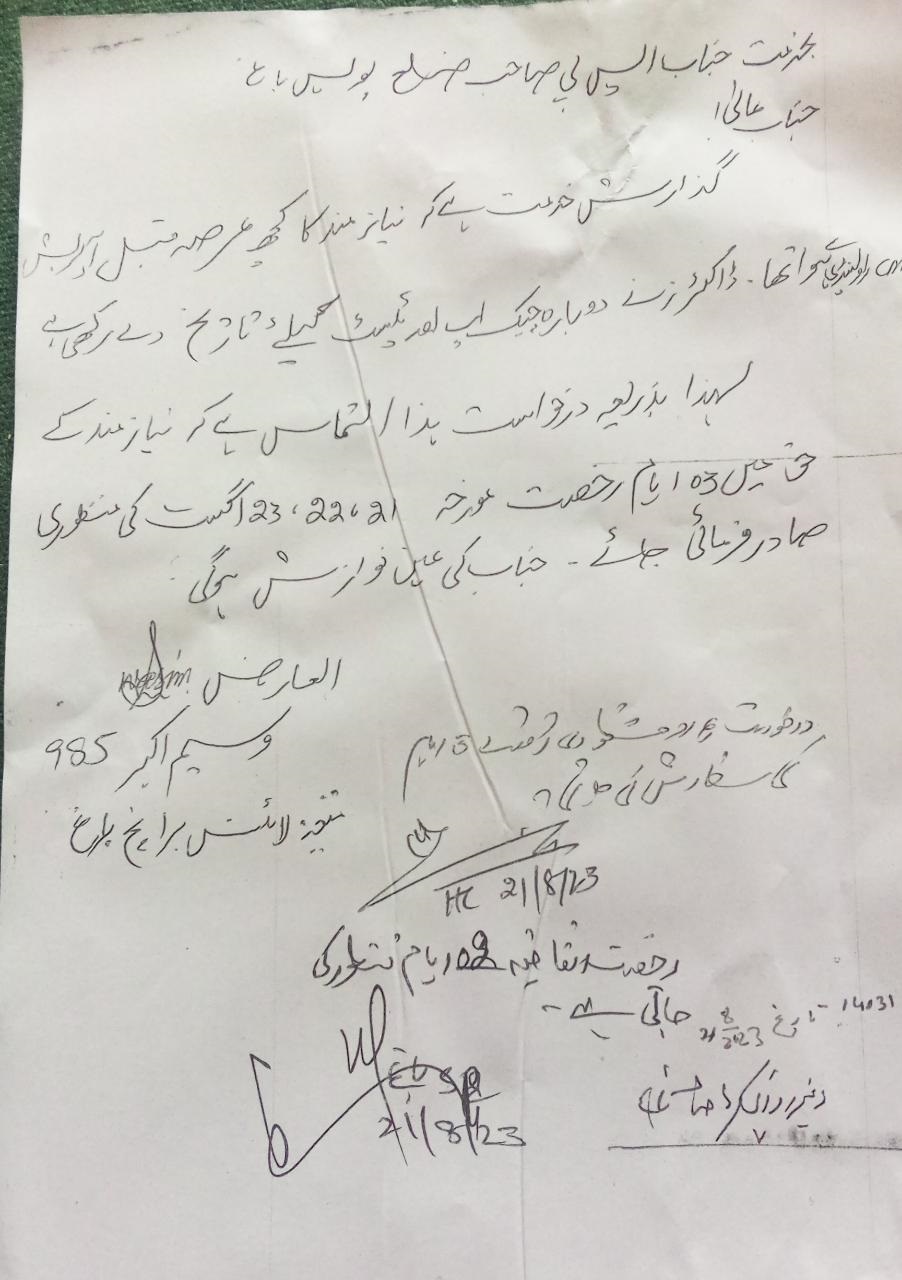 بخدمت جناب ایس پی صاحب ضلع پولیس باغ
جناب عالی!
گذارش خدمت ہے کہ نیاز مند کا کچھ عرصہ قبل آپریشن
راولپنڈی سے ہوا تھا۔ ڈاکٹرز نے دوبارہ چیک اپ اور ٹیسٹ کیلئے تاریخ دے رکھی ہے
لہذا بذریعہ درخواست ہذا التماس ہے کہ نیاز مند کے
حق میں 03 ایام رخصت مورخہ 21، 22، 23 اگست کی منظوری
صادر فرمائی جائے۔ جناب کی عین نوازش ہوگی۔
العارض Waseem
وسیم اکبر 985
لائسنس برانچ باغ
درخواست رخصت ایام
کی سفارش کی جاتی ہے
HC 21/8/23
رخصت اتفاقیہ ایام منظور کی
جاتی ہے۔
14031 تاریخ 21/8/2023
SP باغ
21/8/23